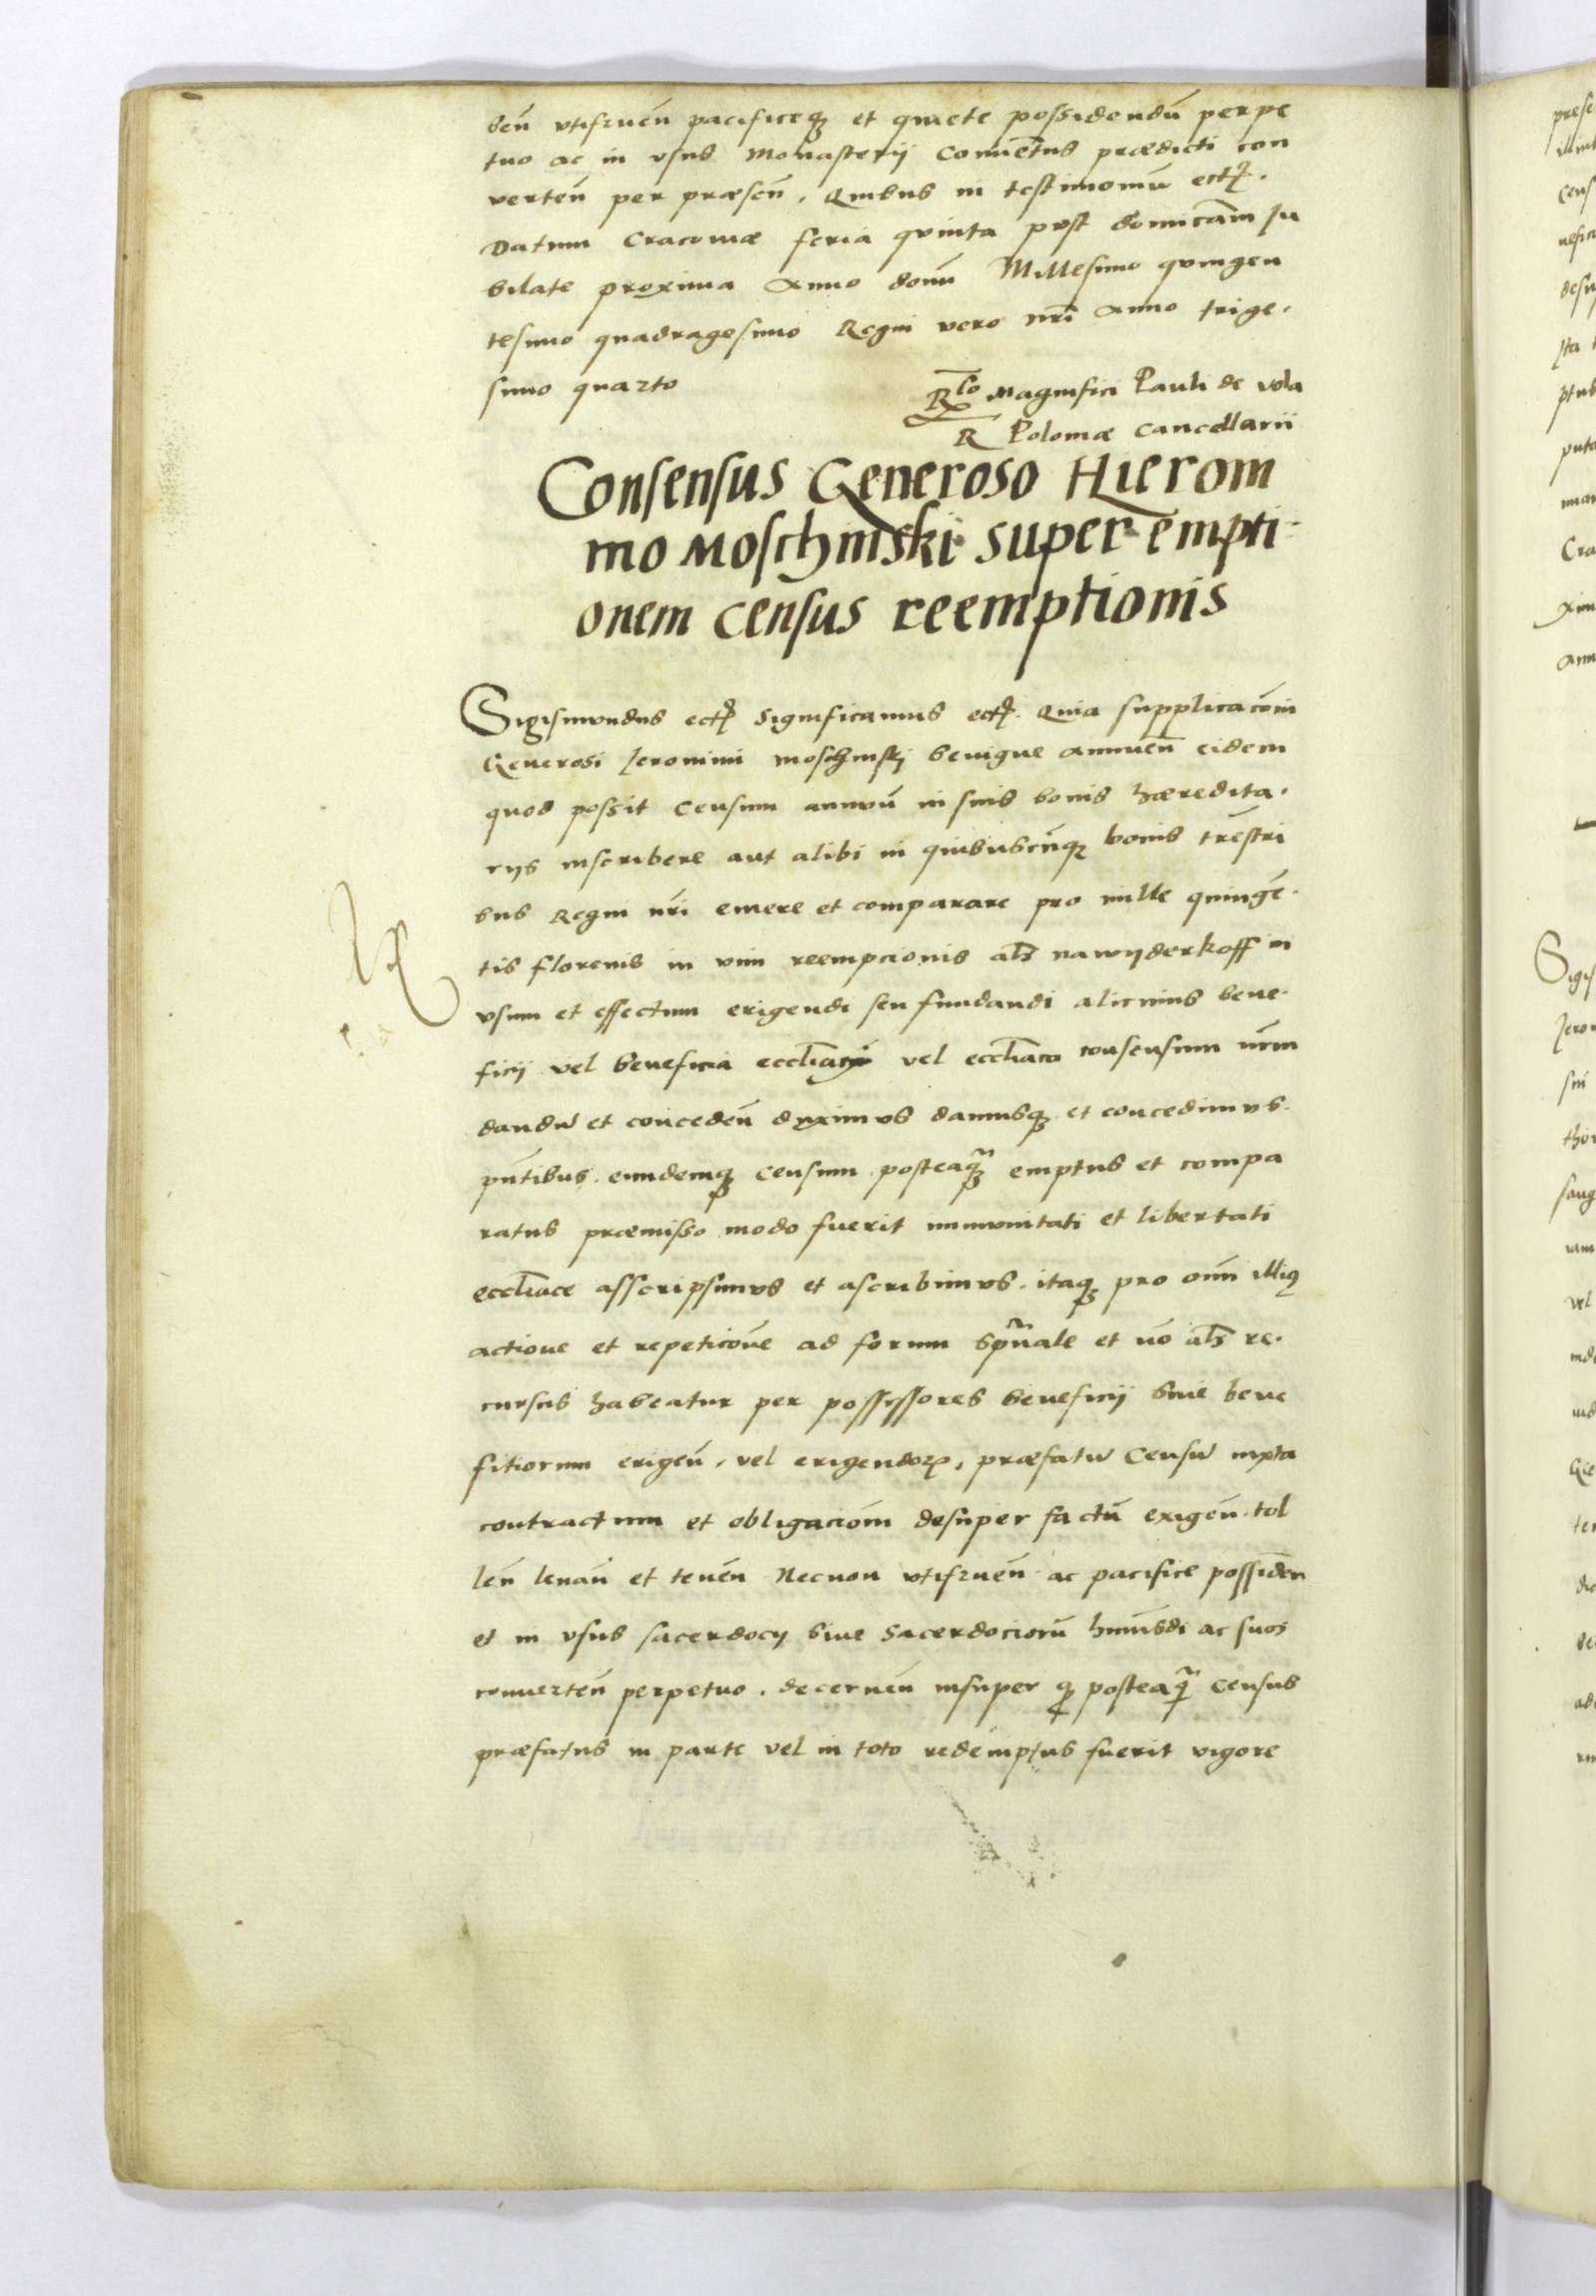 ben̄ vtifruen̄ pacificeq₃ et quiete possidendū perpe
tuo ac in vsus Monasterii Conuētus prædicti con
verten̄ per præsen̄. Quibus in testimoniū ect.
Datum Cracouiæ feria quinta post domīcam Ju
bilate proxima Anno domī Millesimo quingen
tesimo quadragesimo Regni vero nr̄i Anno trige.
simo quarto
R̄lo Magnifici Pauli de vola
R Poloniæ Cancellarii
Consensus Generoso Hieroni
mo Moschinski super empti-
onem census reemptionis
Sigismundus ect Significamus ect. Quia supplicacōni
Generosi Jeronimi Moschinskj benigne annuen̄ eidem
quod possit Censum annuū in suis bonis hæredita.
rijs inscribere aut alibi in quibuscūnq₃ bonis tr̄estri
bus Regni nr̄i emere et comparare pro mille quingē.
tis florenis in vim reempcionis al̄s nawyderkoff in
vsum et effectum erigendi seu fundandi alicuius bene.
ficij vel beneficia eccl̄iaci vel eccl̄iaco consensum nr̄m
dandū et conceden̄ duximus damusq₃ et concedimus.
pn̄tibus. eundemq₃ Censum posteaq̄₃ emptus et compa
ratus præmisso modo fuerit immunitati et libertati
eccl̄iace asscripsimus et ascribimus. itaq₃ pro om̄i illiꝰ
actione et repeticōne ad forum spūale et nō al̄s re.
cursus habeatur per possessores beneficij siue bene
fitiorum erigen̄. vel erigendoꝝ, præfatū Censū iuxta
contractum et obligaciōm desuper factū exigen̄. tol
len̄ leuan̄ et tenen̄ Necnon vtifruen̄ ac pacifice possiden̄
et in vsus sacerdocij siue Sacerdociorū hmōi ac suos
conuerten̄ perpetuo. decernen̄ insuper q₃ posteaq̄ Census
præfatus in parte vel in toto redemptus fuerit vigore